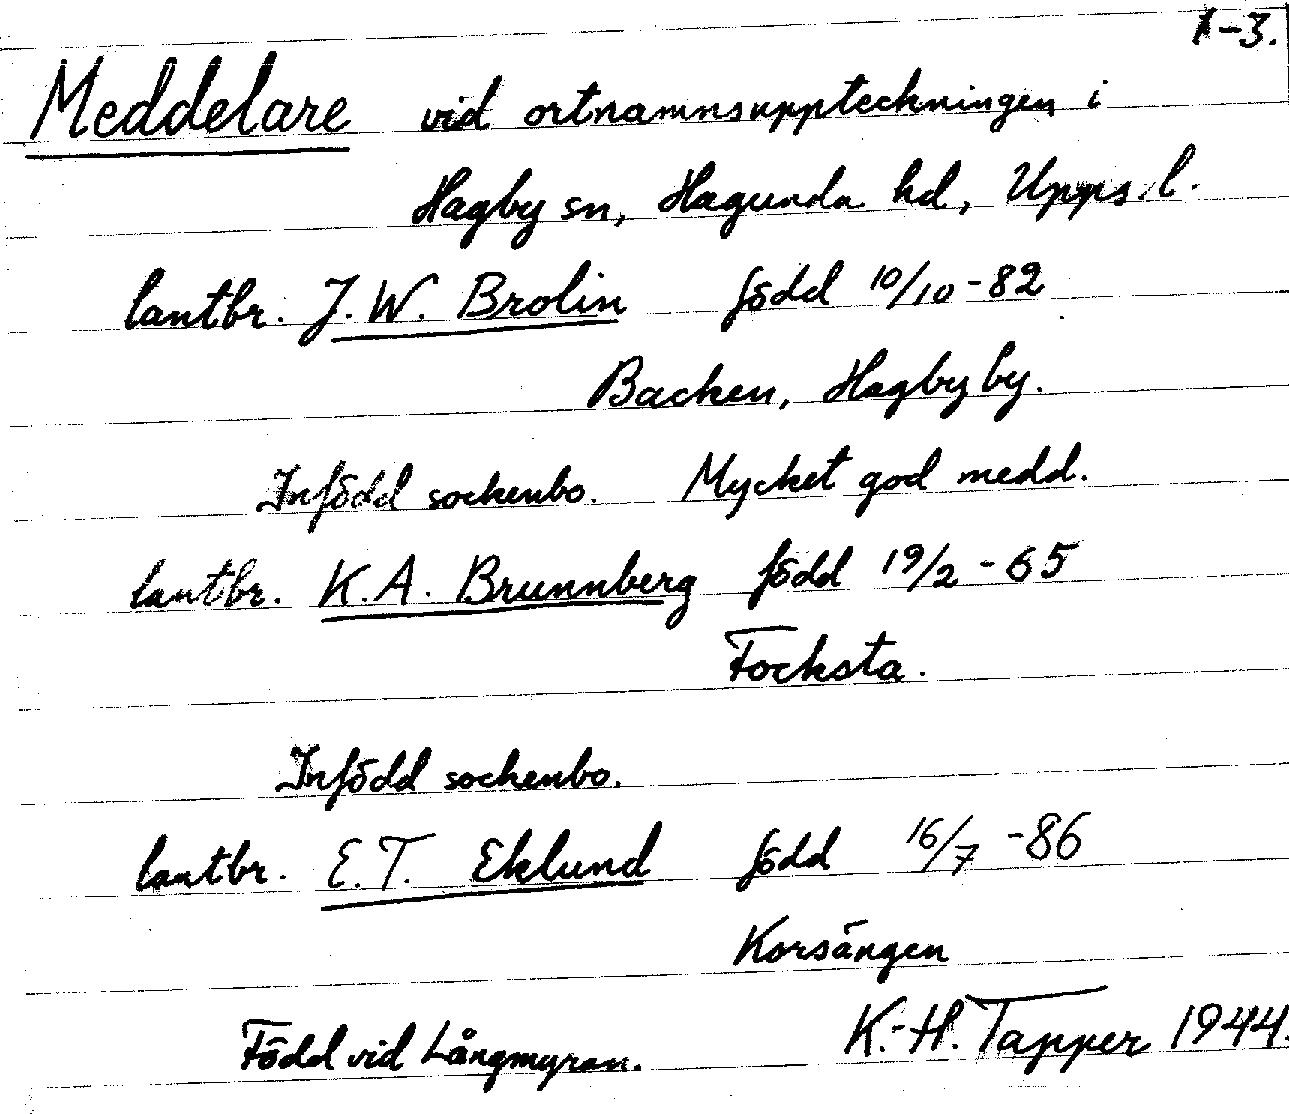 1-3.
Meddelare vid ortnamnsuppteckningen i
Hagby sn, Hagunda hd, Upps. l.
lantbr. J. W. Brolin född 10/10 -82
Backen, Hagby by.
Infödd sockenbo. Mycket god medd.
lantbr. K. A. Brunnberg född 19/2 - 65
Focksta.
Infödd sockenbo.
lantbr. E. T. Eklund född 16/7 -86
Korsängen
Född vid Långmyran. K.-H. Tapper 1944.